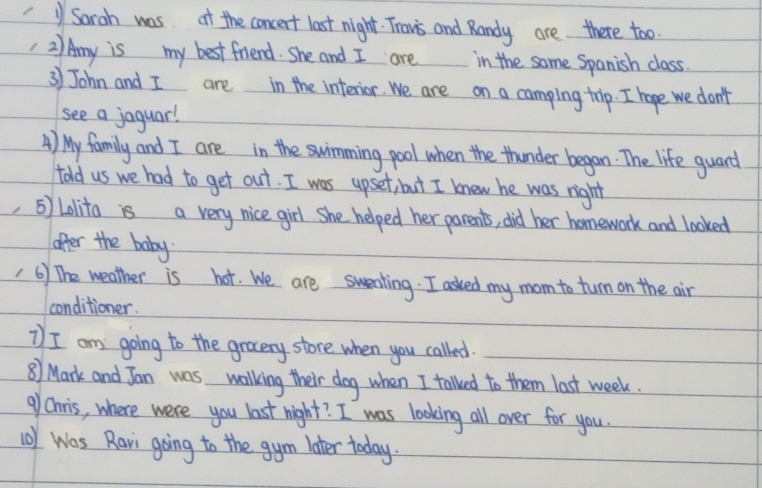 1) Sarah was at the concert last night. Travis and Randy are there too.
2) Amy is my best friend. She and I are in the same Spanish class.
3) John and I are in the interior. We are on a camping trip. I hope we don't
see a jaguar!
4) My family and I are in the swimming pool when the thunder began. The life guard
told us we had to get out. I was upset, but I knew he was right
5) Lolita is a very nice girl She helped her parents, did her homework and looked
after the baby.
6) The weather is hot. We are sweating. I asked my mom to turn on the air
conditioner.
7) I am going to the grocery store when you called.
8) Mark and Jan was walking their dog when I talked to them last week.
9) Chris, where were you last night? I was looking all over for you.
10) Was Ravi going to the gym later today.